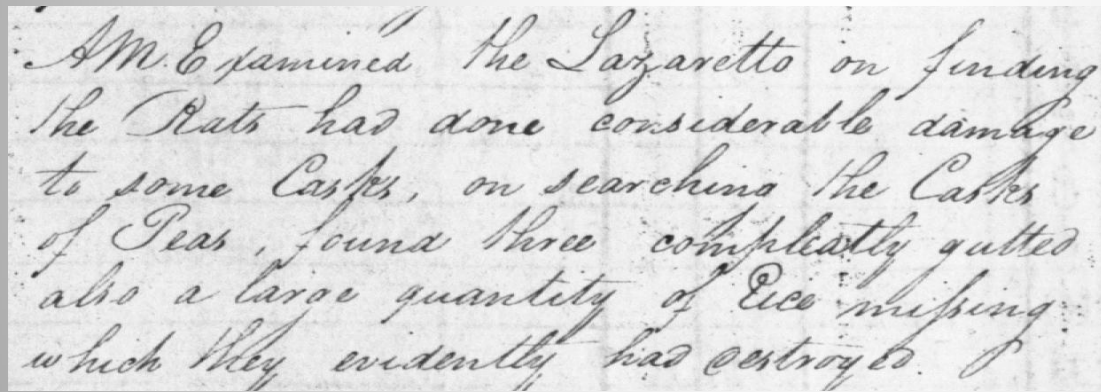 AM. Examined the Lazaretto on finding
the Rats had done considerable damage
to some Casks, on searching the Casks
of Peas, found three compleatly gutted
also a large quantity of Rice missing
which they evidently had destroyed.